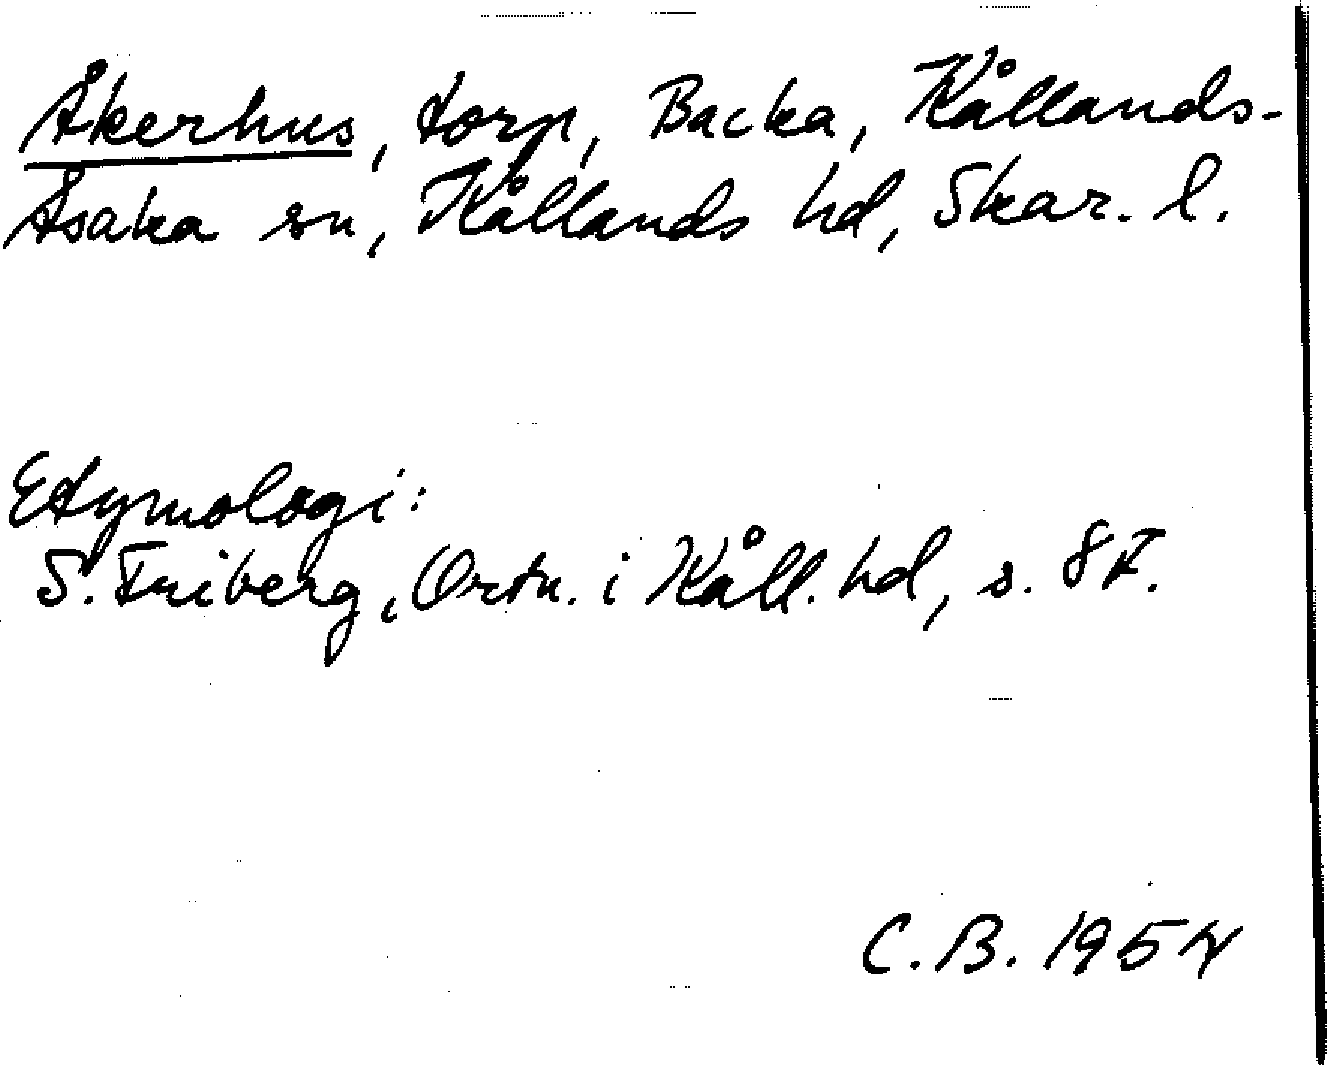 Åkerhus, torp, Backa, Kållands-
Åsaka sn, Kållands hd, Skar. l.
Etymologi:
S. Friberg, Ortn. i Kåll. hd, s.
C.B. 1954